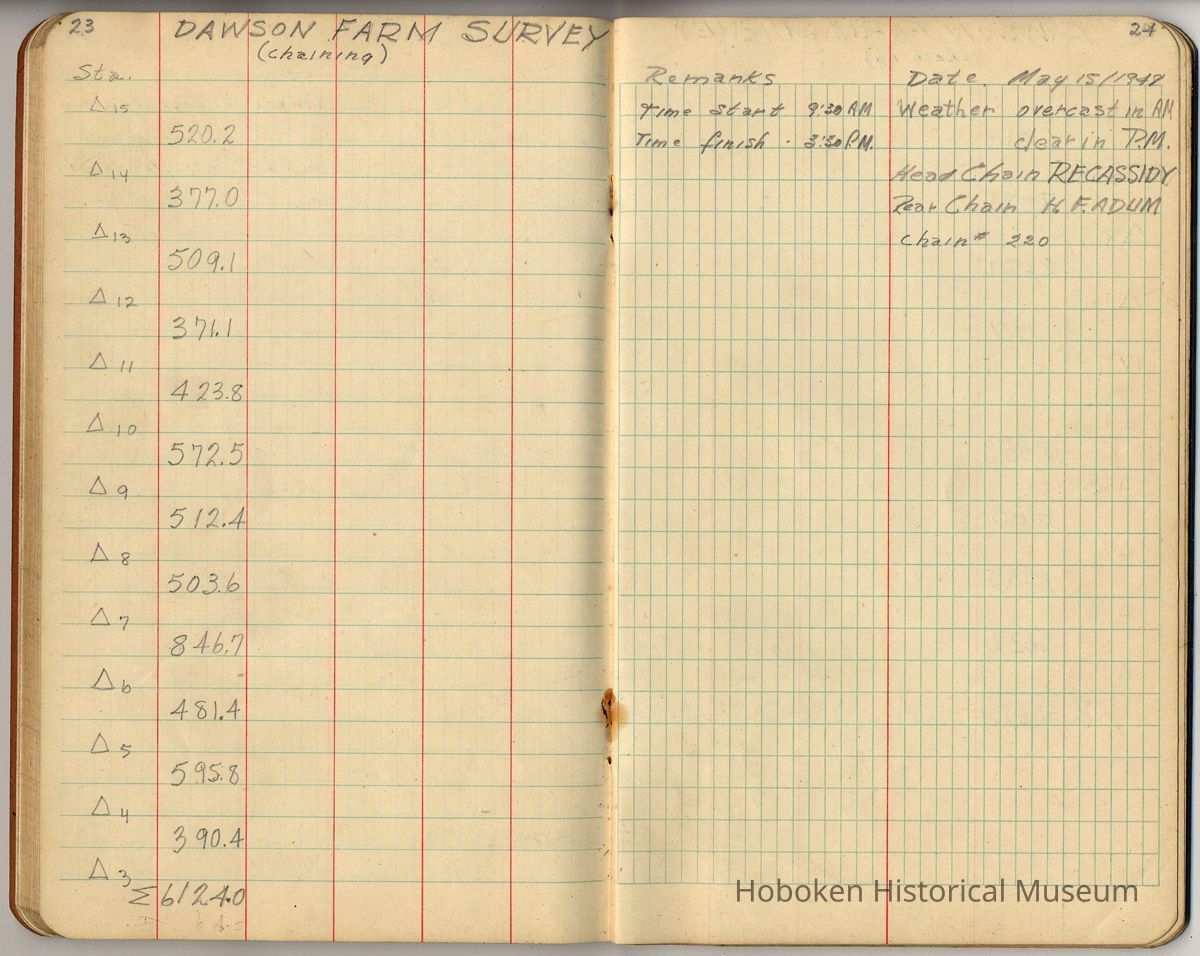 23
DAWSON FARM SURVEY
(chaining)
Sta.
Δ 15
520.2
Δ 14
377.0
Δ 13
509.1
Δ 12
371.1
Δ 11
423.8
Δ 10
572.5
Δ 9
512.4
Δ 8
503.6
Δ 7
846.7
Δ 6
481.4
Δ 5
595.8
Δ 4
390.4
Δ 3
Σ 6124.0
24
Remarks
Time start 9:30 AM
Time finish - 3:30 P.M.
Date. May 15/1948
Weather overcast in AM
clear in P.M.
Head Chain RECASSIDY
Rear Chain H.F.ADUM
Chain # 220
Hoboken Historical Museum